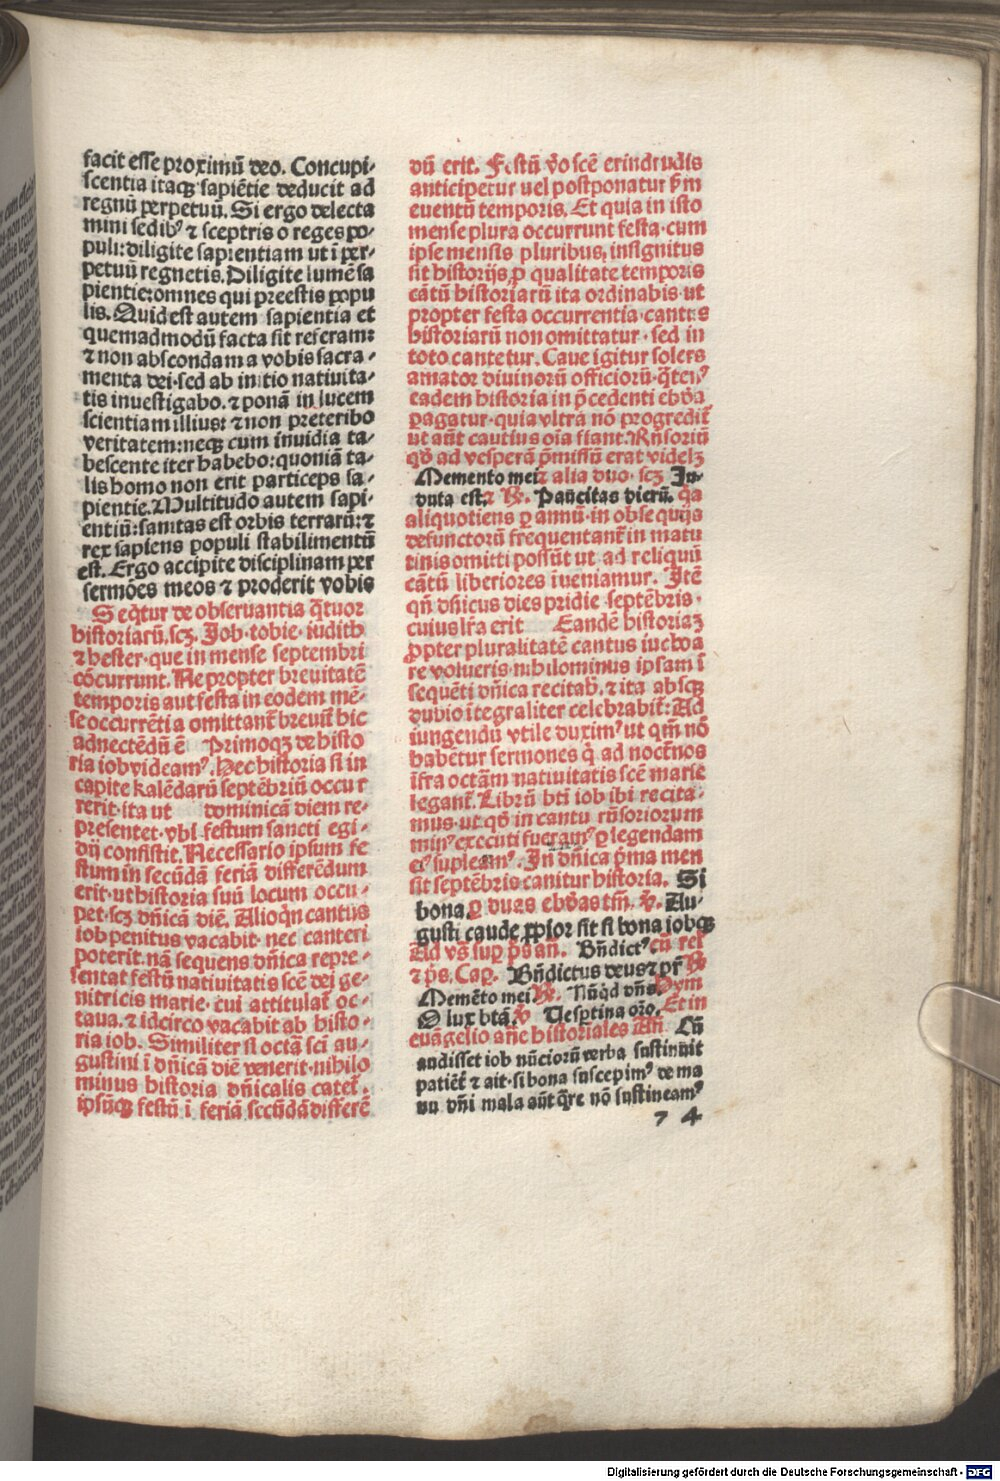 facit esse proximū deo. Concupi-
scentia itaqꝫ sapiētie deducit ad
regnū perpetuū. Si ergo delecta
mini sedibꝰ ⁊ sceptris o reges po-
puli: diligite sapientiam ut ī per-
petuū regnetis. Diligite lumē sa
pientie: omnes qui preestis popu
lis. Quid est autem sapientia et
quemadmodū facta sit referam:
⁊ non abscondam a vobis sacra-
menta dei· sed ab initio nativita-
tis investigabo. ⁊ ponā in lucem
scientiam illius: ⁊ non preteribo
veritatem: neqꝫ cum invidia ta-
bescente iter habebo: quoniā ta-
lis homo non erit particeps sa-
pientie. Multitudo autem sapi-
entiū: sanitas est orbis terrarū: ⁊
rex sapiens populi stabilimentū
est. Ergo accipite disciplinam per
sermōes meos ⁊ proderit vobis
Seqͥtur de observantia qͣtuor
historiarū. scꝫ. Job· tobie· iudith
⁊ hester· que in mense septembri
cōcurrunt. Ne propter brevitatē
temporis aut festa in eodem mē-
se occurrētia omittant̄ brevit̄ hic
adnectēdū ē Primoqꝫ de histo
ria iob videamꝰ. Hec historia si in
capite kalēdarū septēbriū occur
rerit· ita ut dominicā diem re-
presentet· vbi festum sancti egi-
dij consistit. Necessario ipsum fe
stum in secūdā feriā differēdum
erit· ut historia suū locum occu-
pet· scꝫ dn̄icā diē. Alioqͥn cantus
iob penitus vacabit· nec canteri
poterit. nā sequens dn̄ica repre-
sentat festū nativitatis scē dei ge-
nitricis marie· cui attitulat̄ oc-
tava. ⁊ idcirco vacabit ab histo-
ria iob. Similiter si octā sc̄i au-
gustini ī dn̄icā diē venerit· nihilo
minus historia dn̄icalis catet̄.
ipsūqꝫ festū ī feriā secūdā differē
dū erit. Festū v̊o scē erindrudis
anticipetur uel postponatur ꝑm
eventū temporis. Et quia in isto
mense plura occurrunt festa· cum
ipse mensis pluribus, insignitus
sit historijs, ꝑ qualitate temporis
cātū historiarū ita ordinabis· ut
propter festa occurrentia· cantus
historiarū non omittatur· sed in
toto cantetur. Cave igitur solers
amator divinorū officiorū· qͣtenꝰ
eadem historia in p̄cedenti ebd̄a
ꝑagatur· quia vltra nō progredit̄
ut aūt cautius oīa fiant. Rn̄soriū
qd̄ ad vesperā p̄missū erat videlꝫ
Memento mei ⁊ alia duo· scꝫ In-
duta est. ⁊ ℟. Paucitas dierū. qa
aliquotiens ꝑ annū· in obsequijs
defunctorū frequentant̄ in matu
tinis omitti possūt ut ad reliquū
cātū liberiores īveniamur. Itē
qn̄ dn̄icus dies pridie septēbris·
cuius lr̄a erit Eandē historiaꝫ
ꝓpter pluralitatē cantus iuchoa
re volueris· nihilominus ipsam ī
sequēti dn̄ica recitab̄. ⁊ ita absqꝫ
dubio ītegraliter celebrabit̄: Ad
iungendū vtile duximꝰ ut qm̄ nō
habētur sermones qͥ ad noct̄nos
īfra octām nativitatis scē marie
legant̄. Librū bt̄i iob ibi recita-
mus. ut qd̄ in cantu rn̄soriorum
minꝰ executi fueramꝰ ꝑ legendam
eiꝰ supleamꝰ. In dn̄ica p̄ma men
sis septēbris canitur historia. Si
bona. ꝑ duas ebd̄as tm̄. ℣. Au-
gusti caude ꝓpior sit si bona iobqꝫ
Ad vs̄ sup̄ p̄s an̄. Bn̄dictꝰ cū rel
⁊ p̄s. Cap̄. Bn̄dictus deus ⁊ pr̄ ℟
Memēto mei ℟. Nūqd dn̄s. Hym
O lux btā. ℣ Vesptina or̄o. Et in
euāgelio an̄e historiales An̄. Cū
audisset iob nūciorū verba sustinuit
patiēt̄ ⁊ ait· si bona suscepimꝰ de ma
nu dn̄i mala aūt qͣre nō sustineamꝰ
74
Digitalisierung gefördert durch die Deutsche Forschungsgemeinschaft - DFG